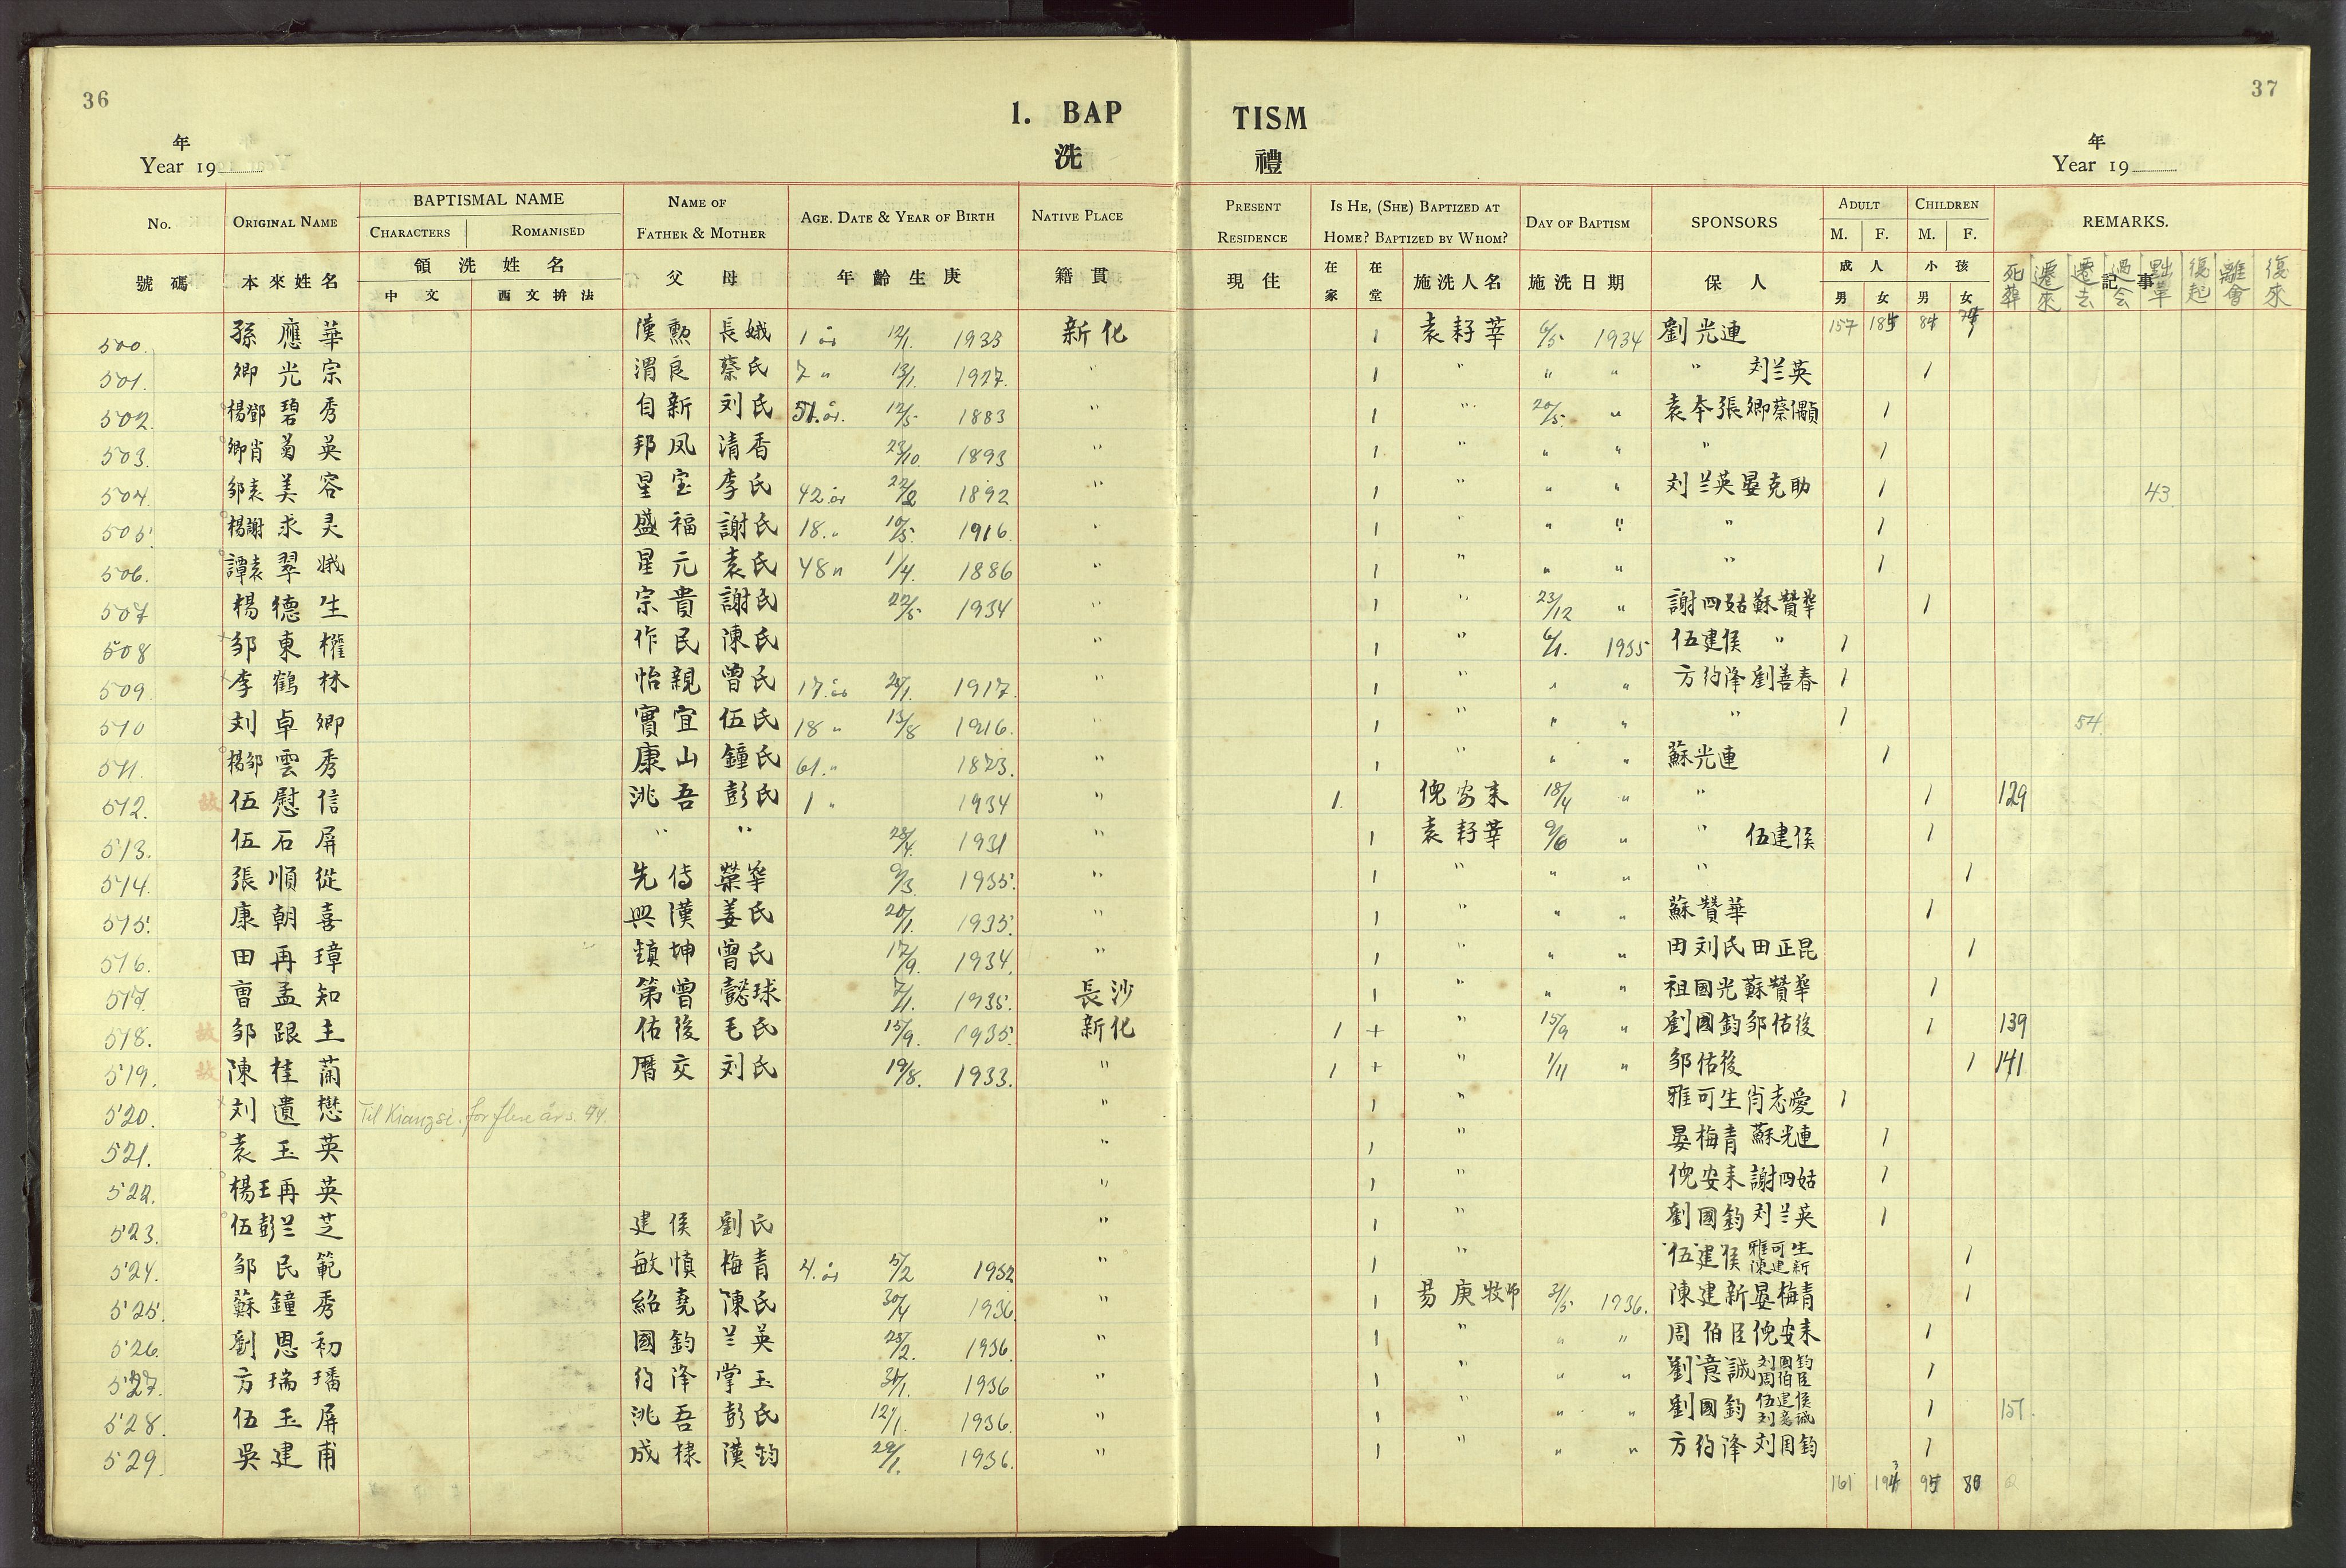 36
37
1. BAP TISM
洗 禮
年
Year 19
年
Year 19
No. ORIGINAL NAME BAPTISMAL NAME CHARACTERS ROMANISED NAME OF FATHER & MOTHER AGE. DATE & YEAR OF BIRTH NATIVE PLACE PRESENT RESIDENCE IS HE, (SHE) BAPTIZED AT HOME? BAPTIZED BY WHOM? DAY OF BAPTISM SPONSORS ADULT M. F. CHILDREN M. F. REMARKS.
號碼 本來姓名 領洗姓名 中文 西文拚法 父 母 年齡生庚 籍貫 現住 在家 在堂 施洗人名 施洗日期 保人 成人 男 女 小孩 男 女 記事 死葬 遷來 遷去 過会 黜革 復起 離會 復來
500. 孫應華 漢勲 長娥 1 år 12/1. 1933 新化 1 袁籽華 6/5 1934 劉光連 157
501. 卿光宗 渭良 蔡氏 7 " 13/1. 1927. " 1 " " " " 刘兰英 1
502. 楊鄧碧秀 自新 刘氏 51. år. 12/5 1883 " 1 " 20/5. " 1
503. 卿肖菊英 邦凤 清香 23/10. 1893 " 1 " " " " 1
504. 邹袁美容 星宝 李氏 42 år 22/8 1892 " 1 " " " 刘兰英晏克助 1 43
505. 楊謝求灵 盛福 謝氏 18. " 10/5. 1916. " 1 " " " " 1
506. 譚袁翠娥 星元 袁氏 48 " 1/4. 1886 " 1 " " " " 1
507 楊德生 宗貴 謝氏 22/5 1934 " 1 " 23/12 " 謝四姑蘇贊華 1
508 邹東權 作民 陳氏 " 1 " 6/1. 1935 伍建侯 " 1
509. 李鹤林 怡親 曾氏 17. år 1917. " 1 " " " 方約浲劉善春 1
510 刘卓卿 實宜 伍氏 18 " 13/8 1916. " 1 " " " " 1 54
511. 楊邹雲秀 康山 鐘氏 61. " 1873. " 1 " " " 蘇光連 1
512. 故 伍慰信 洮吾 彭氏 1 " 1934 " 1. 倪安耒 18/4 " " 1 129
513. 伍石屏 " " 28/4. 1931 " 1 袁籽華 9/6 " " 伍建侯 1
514. 張順從 先侍 榮華 9/3. 1935. " 1 " " " " 1
515. 康朝喜 興漢 姜氏 20/1. 1935. " 1 " " " 蘇贊華 1
516. 田再璋 鎮坤 曾氏 17/9. 1934. " 1 " " " 田刘氏田正昆 1
517. 曹孟知 第曾 懿球 7/1. 1935. 長沙 1 " " " 祖國光蘇贊華 1
518. 故 邹跟主 佑後 毛氏 15/9. 1935. 新化 1 + " 15/9 " 劉國鈞邹佑後 1 139
519. 故 陳桂蘭 曆交 刘氏 19/8. 1933. " 1 + " 1/11 " 邹佑後 1 141
520. 刘遺懋 Til Kiangsi. for flere år s. 44. " 1 " 雅可生肖志愛 1
521. 袁玉英 " 1 " 晏梅青 蘇光連 1
522. 楊王再英 " 1 " 倪安耒謝四姑 1
523. 伍彭兰芝 建侯 劉氏 " 1 " 劉國鈞刘兰英 1
524. 邹民範 敏慎 梅青 4. år 5/2 1932 " 1 " 伍建侯 雅可生 陳建新 1
525. 蘇鐘秀 紹堯 陳氏 30/4 1936. " 1 易庚牧师 31/5 1936. 陳建新晏梅青 1
526. 劉恩初 國鈞 兰英 28/2. 1936. " 1 " " " 周伯臣倪安耒 1
527. 方瑞璠 約浲 掌玉 31/1. 1936 " 1 " " " 劉意誠 刘國鈞 周伯臣 1
528. 伍玉屏 洮吾 彭氏 12/1. 1936. " 1 " " " 劉國鈞 伍建侯 刘意诚 1 151.
529. 吳建甫 成棣 漢鈞 29/1. 1936. " 1 " " " 方約浲 刘国鈞 1
161